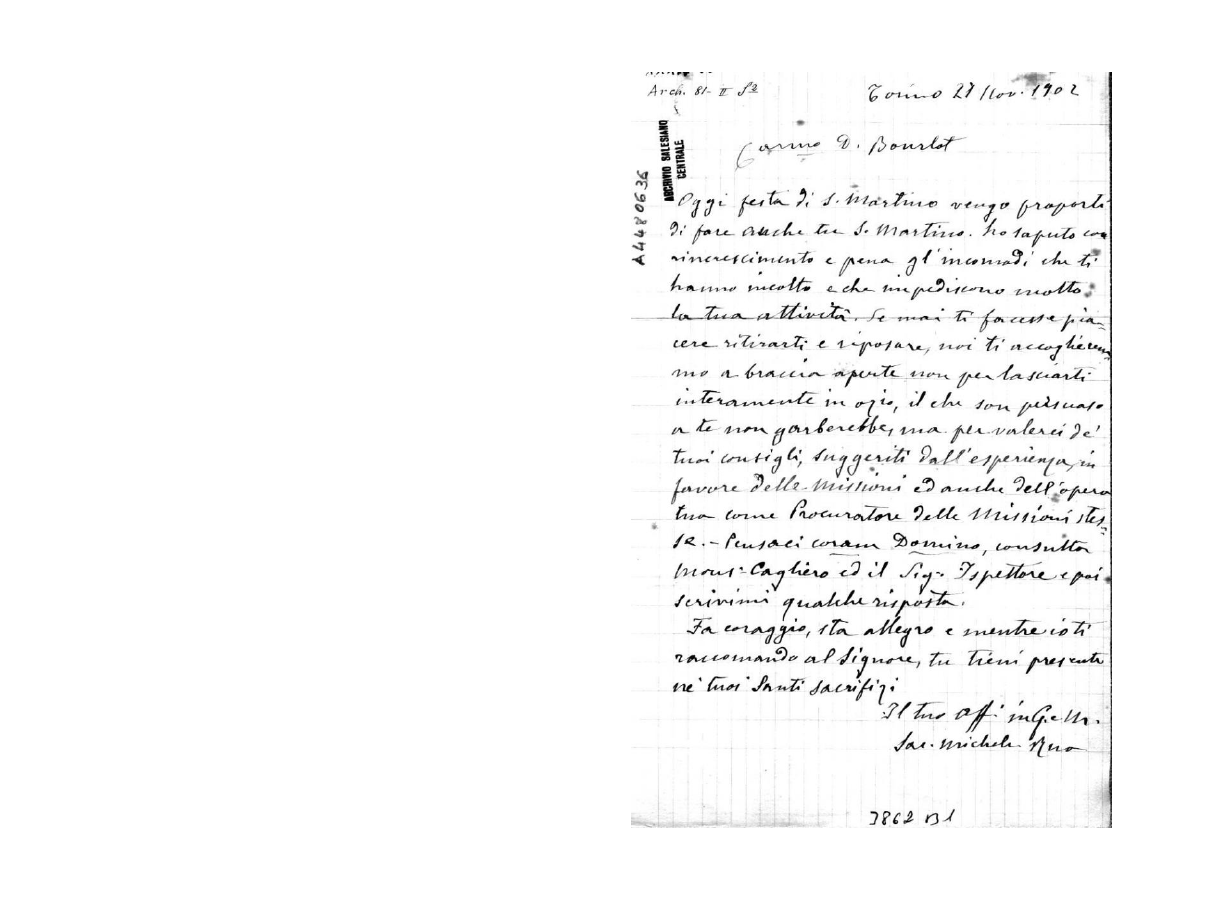 Arch. 81- II S2
Torino 27 Nov. 1902
Carmo D. Bourlot
ARCHIVIO SALESIANO
CENTRALE
A4480636
Oggi festa di S. Martino vengo proporti
di fare anche tu S. Martino. Ho saputo con
rincrescimento e pena gl'incomodi che ti
hanno incolto e che impediscono molto
la tua attività. Se mai ti facesse pia-
cere ritirarti e riposare, noi ti accoglierem
mo a braccia aperte non per lasciarti
interamente in ozio, il che son persuaso
a te non garberebbe, ma per valerci de'
tuoi consigli, suggeriti dall'esperienza, in
favore delle Missioni ed anche dell'opera
tua come Procuratore delle Missioni stes-
se. - Pensaci coram Domino, consulta
Mons. Cagliero ed il Sig. Ispettore e poi
scrivimi qualche risposta.
Fa coraggio, sta allegro e mentre io ti
raccomando al Signore, tu tieni presente
ne' tuoi Santi Sacrifizi
Il tuo aff. in G. e M.
Sac. Michele Rua
3862 B1